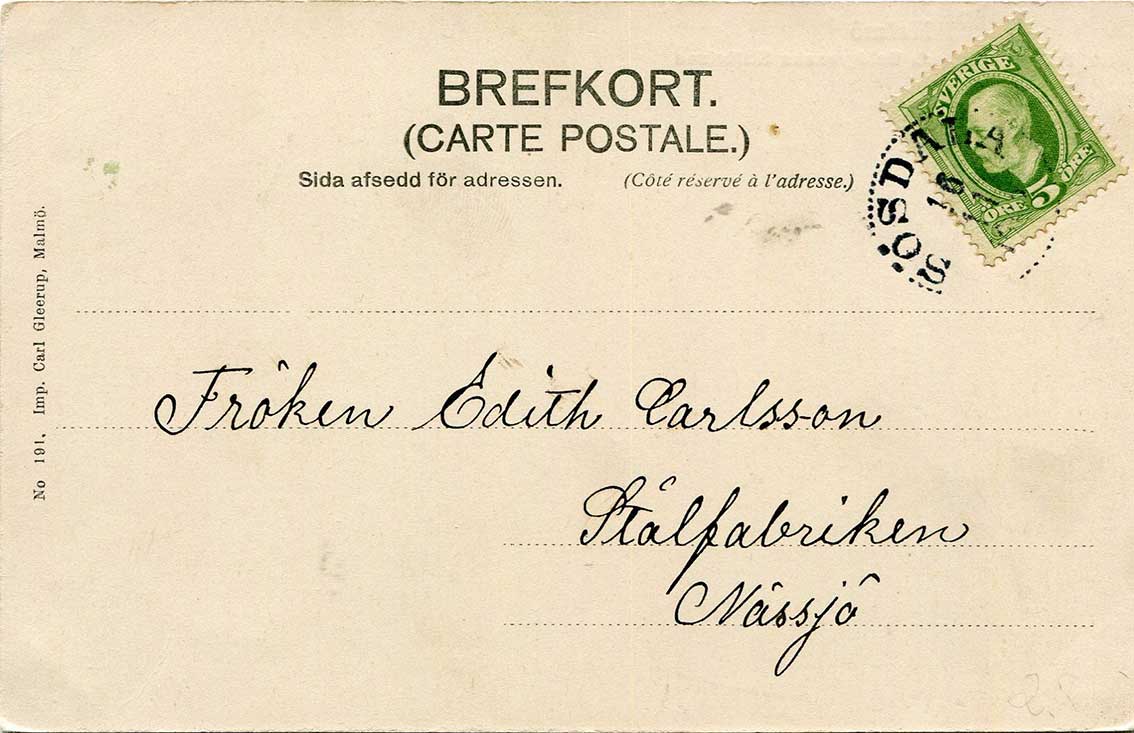 BREFKORT.
(CARTE POSTALE.)
Sida afsedd för adressen. (Côté réservé à l'adresse.)
SVERIGE
5
ÖRE ÖRE
SÖSDALA
16
No 191. Imp. Carl Gleerup, Malmö.
Fröken Edith Carlsson
Stålfabriken
Nässjö